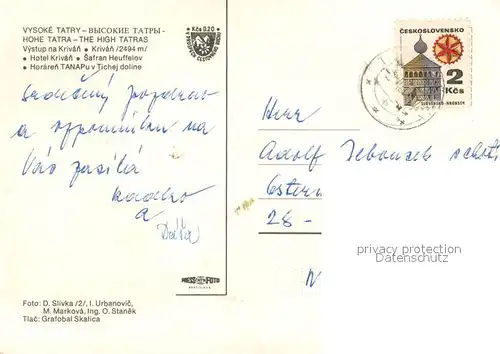 VYSOKÉ TATRY – ВЫСОКИЕ ТАТРЫ -
HOHE TATRA – THE HIGH TATRAS
Výstup na Kriváň • Kriváň /2494 m/
• Hotel Kriváň • Šafran Heuffelov
• Horáreň TANAPu v Tichej doline
Kčs 0,20
ČESKOSLOVENSKO
2
Kčs
SLOVENSKO-HRONSEK
Srdečný pozdrav
a vzpomínku na
Vás zasílá
a
Herr
Adolf
Östern
28 -
PRESSFOTO
BRATISLAVA
Foto: D. Slivka /2/, I. Urbanovič,
M. Marková, Ing. O. Staněk
Tlač: Grafobal Skalica
privacy protection
ansichtskarten-center.de